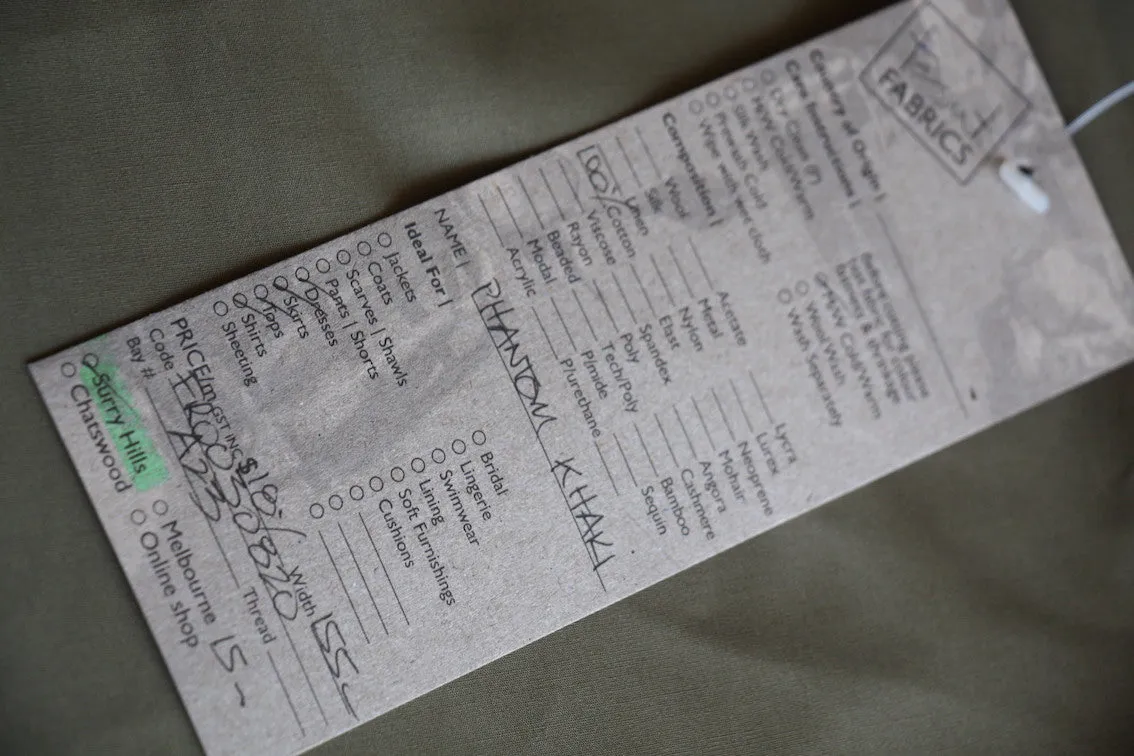 FABRICS
Country of Origin |
Care Instructions |
Dry Clean (P)
H/W Cold/Warm
Silk Wash
Prewash Cold
Wipe with wet cloth
Before cutting please
M/W Cold/Warm
Wool Wash
Wash Separately
Composition |
Wool
Silk
Linen
100% Cotton
Viscose
Rayon
Beaded
Modal
Acrylic
Acetate
Metal
Nylon
Elast
Spandex
Poly
Tech/Poly
P/mide
P/urethane
Lycra
Lurex
Neoprene
Mohair
Angora
Cashmere
Bamboo
Sequin
NAME | PHANTOM KHAKI
Ideal For |
Jackets
Coats
Scarves | Shawls
Pants | Shorts
Dresses
Skirts
Tops
Shirts
Sheeting
Bridal
Lingerie
Swimwear
Lining
Soft Furnishings
Cushions
PRICE/m GST INC $18. Width 155c
Code FR0030820 Thread
Bay # A23
Surry Hills
Chatswood
Melbourne
Online shop
15